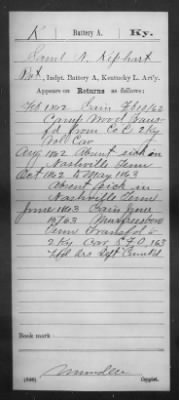 K Battery A, Ky.
Saml N. Kiphart
Pvt., Indpt. Battery A, Kentucky L. Art'y.
Appears on Returns as follows:
Feb 1862 Gain Feb 19/62
Camp Wood trans-
fd from Co C 2 Ky
Cav
Aug 1862 Absent sick in
Nashville Tenn
Oct 1862 to May 1863
Absent sick in
Nashville Tenn
June 1863 Gain June
1863 Murfreesboro
Tenn Transfd to
2 Ky Cav
Book mark:
(546) Copyist.